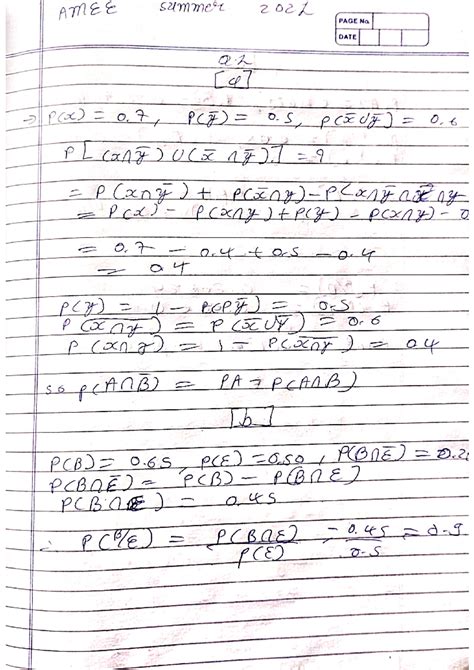 AMEE summer 2021
PAGE No.
DATE
Q.2
[a]
→ P(x) = 0.7, P(ȳ) = 0.5, P(x̄∪ȳ) = 0.6
P[(x∩ȳ)∪(x̄∩y)] = ?
= P(x∩ȳ) + P(x̄∩y) - P(x∩ȳ∩x̄∩y
= P(x) - P(x∩y) + P(y) - P(x∩y) - 0
= 0.7 - 0.4 + 0.5 - 0.4
= 0.4
P(y) = 1 - P(ȳ) = 0.5
P(x̄∩y) = P(x̄∪ȳ) = 0.6
P(x∩y) = 1 - P(x∩y) = 0.4
so P(A∩B̄) = PA - P(A∩B)
[b]
P(B) = 0.65, P(E) = 0.50, P(B∩Ē) = 0.2
P(B∩Ē) = P(B) - P(B∩E)
P(B∩E) = 0.45
∴ P(B/E) = P(B∩E)/P(E) = 0.45/0.5 = 0.9